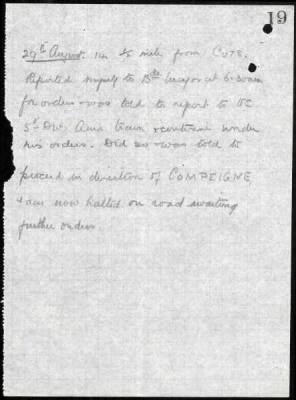 19
29th August. in ½ mile from CUTS.
Reported myself to Bde Major at 6.30am
for orders & was told to report to OC
5th Div. Amn train & continue under
his orders. Did so & was told to
proceed in direction of COMPEIGNE
& am now halted on road awaiting
further orders.